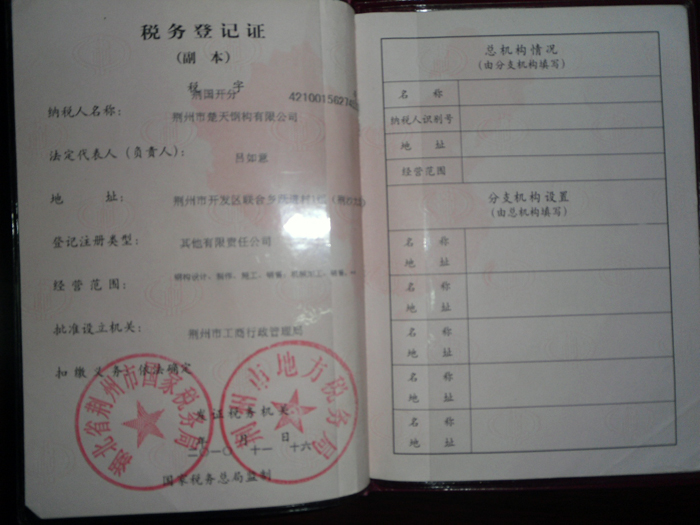 税务登记证
(副 本)
税 字
荆国开分 42100156274
纳税人名称:
荆州市楚天钢构有限公司
法定代表人(负责人):
吕如意
地 址:
荆州市开发区联合乡
登记注册类型:
其他有限责任公司
经营范围:
结构设计、制作、施工、销售;机械加工、销售。
批准设立机关:
荆州市工商行政管理局
扣缴义务:依法确定
湖北省荆州市国家税务局
荆州市地方税务局
发证税务机关
年 月 日
二〇一〇 十一 十六
国家税务总局监制
总机构情况
(由分支机构填写)
名 称
纳税人识别号
地 址
经营范围
分支机构设置
(由总机构填写)
名 称
地 址
名 称
地 址
名 称
地 址
名 称
地 址
名 称
地 址